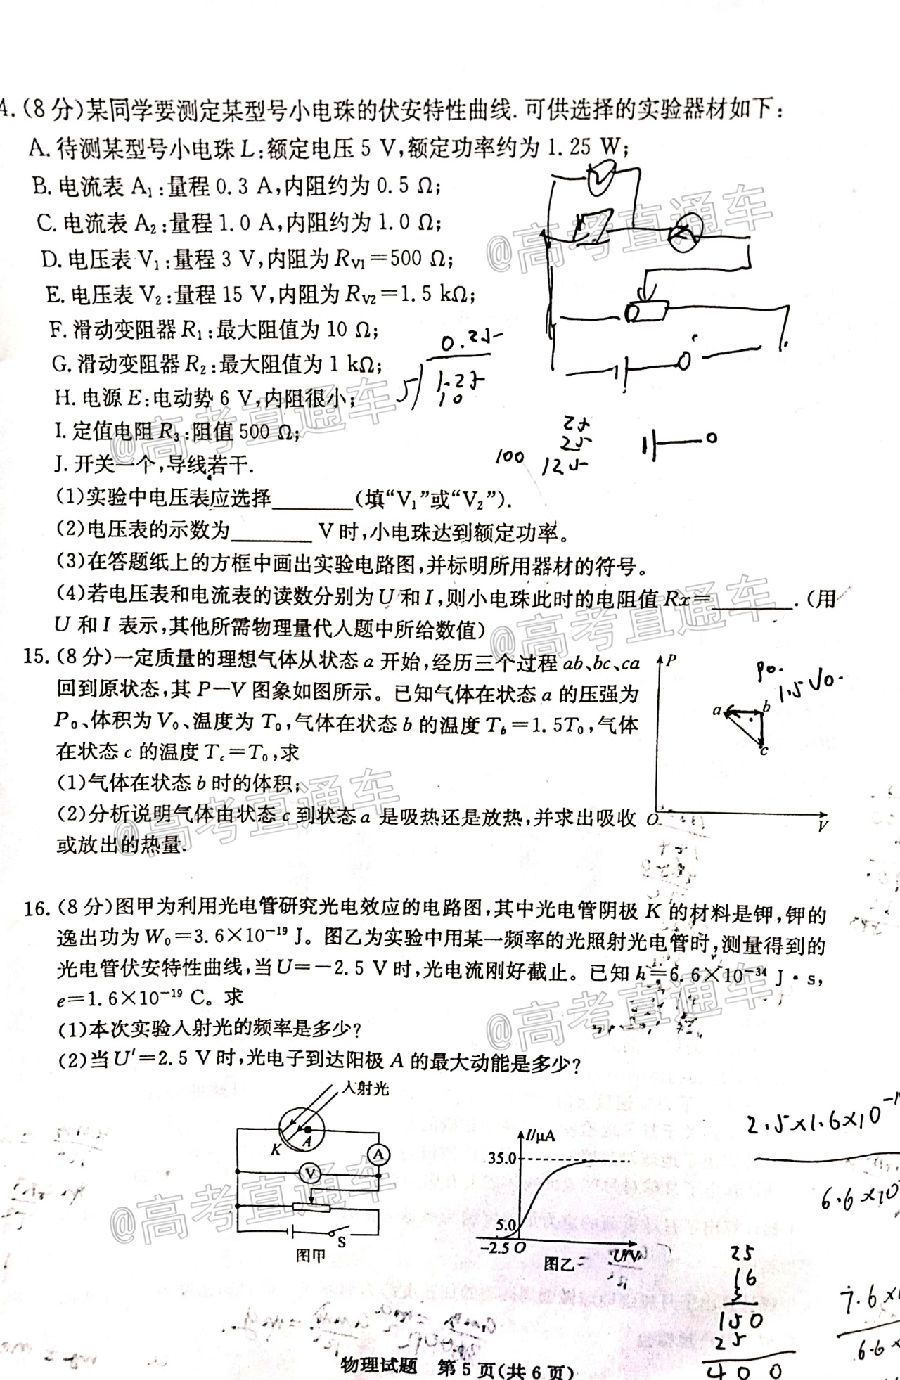 4.(8分)某同学要测定某型号小电珠的伏安特性曲线.可供选择的实验器材如下:
A.待测某型号小电珠L:额定电压5 V,额定功率约为1.25 W;
B.电流表A₁:量程0.3 A,内阻约为0.5 Ω;
C.电流表A₂:量程1.0 A,内阻约为1.0 Ω;
D.电压表V₁:量程3 V,内阻为R_V1=500 Ω;
E.电压表V₂:量程15 V,内阻为R_V2=1.5 kΩ;
F.滑动变阻器R₁:最大阻值为10 Ω;
G.滑动变阻器R₂:最大阻值为1 kΩ;
H.电源E:电动势6 V,内阻很小;
I.定值电阻R₃:阻值500 Ω;
J.开关一个,导线若干.
0.25
5 1.25
10
25
25
100 125
(1)实验中电压表应选择________(填“V₁”或“V₂”).
(2)电压表的示数为________V时,小电珠达到额定功率。
(3)在答题纸上的方框中画出实验电路图,并标明所用器材的符号。
(4)若电压表和电流表的读数分别为U和I,则小电珠此时的电阻值Rx=________.(用
U和I表示,其他所需物理量代人题中所给数值)
15.(8分)一定质量的理想气体从状态a开始,经历三个过程ab、bc、ca
回到原状态,其P—V图象如图所示。已知气体在状态a的压强为
P₀、体积为V₀、温度为T₀,气体在状态b的温度T_b=1.5T₀,气体
在状态c的温度T_c=T₀,求
(1)气体在状态b时的体积;
(2)分析说明气体由状态c到状态a是吸热还是放热,并求出吸收
或放出的热量.
P
P0.
1.5V0.
a b
c
O V
16.(8分)图甲为利用光电管研究光电效应的电路图,其中光电管阴极K的材料是钾,钾的
逸出功为W₀=3.6×10⁻¹⁹ J。图乙为实验中用某一频率的光照射光电管时,测量得到的
光电管伏安特性曲线,当U=-2.5 V时,光电流刚好截止。已知h=6.6×10⁻³⁴ J·s,
e=1.6×10⁻¹⁹ C。求
(1)本次实验入射光的频率是多少?
(2)当U′=2.5 V时,光电子到达阳极A的最大动能是多少?
入射光
K A
A
V
S
图甲
I/μA
35.0
5.0
-2.5 O U/V
图乙
2.5×1.6×10
6.6×10
25
16
150
25
400
7.6×
6.6×
物理试题 第5页(共6页)
@高考直通车
@高考直通车
@高考直通车
@高考直通车
@高考直通车
@高考直通车